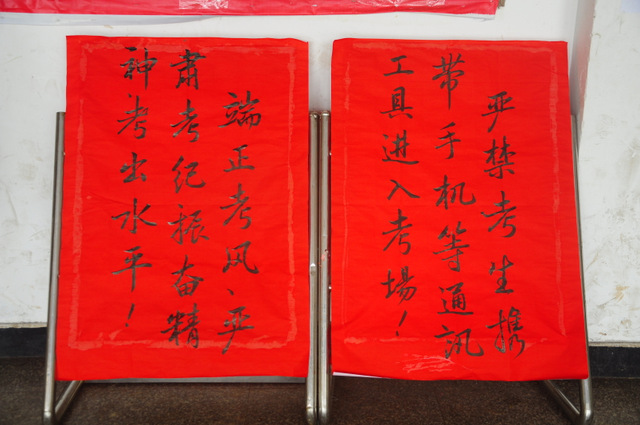 严禁考生携
带手机等通訊
工具进入考場！
端正考风、严
肃考纪振奋精
神考出水平！